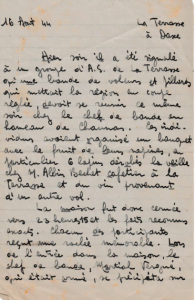 16 Août 44
La Terrasse
à Daxe
Hier soir il a été signalé
à un groupe d'A.S. de La Terrasse
qu'une bande de voleurs et pillards
qui mettait la région en coupe
réglée, devait se réunir ce même
soir chez le chef de bande au
hameau de Chaumas. Ces indi-
vidus avaient organisé un banquet
avec le fruit de leurs rapines, en
particulier 6 lapins volés la veille
chez M. Albin cafetier à la
Terrasse et du vin provenant
d'un autre vol.
La maison fut donc cernée
vers et les faits reconnus
exacts. Chacun des participants
reçut une raclée mémorable. Lors
de l'entrée dans la maison, le
chef de bande, Martial
qui était armé, se précipita